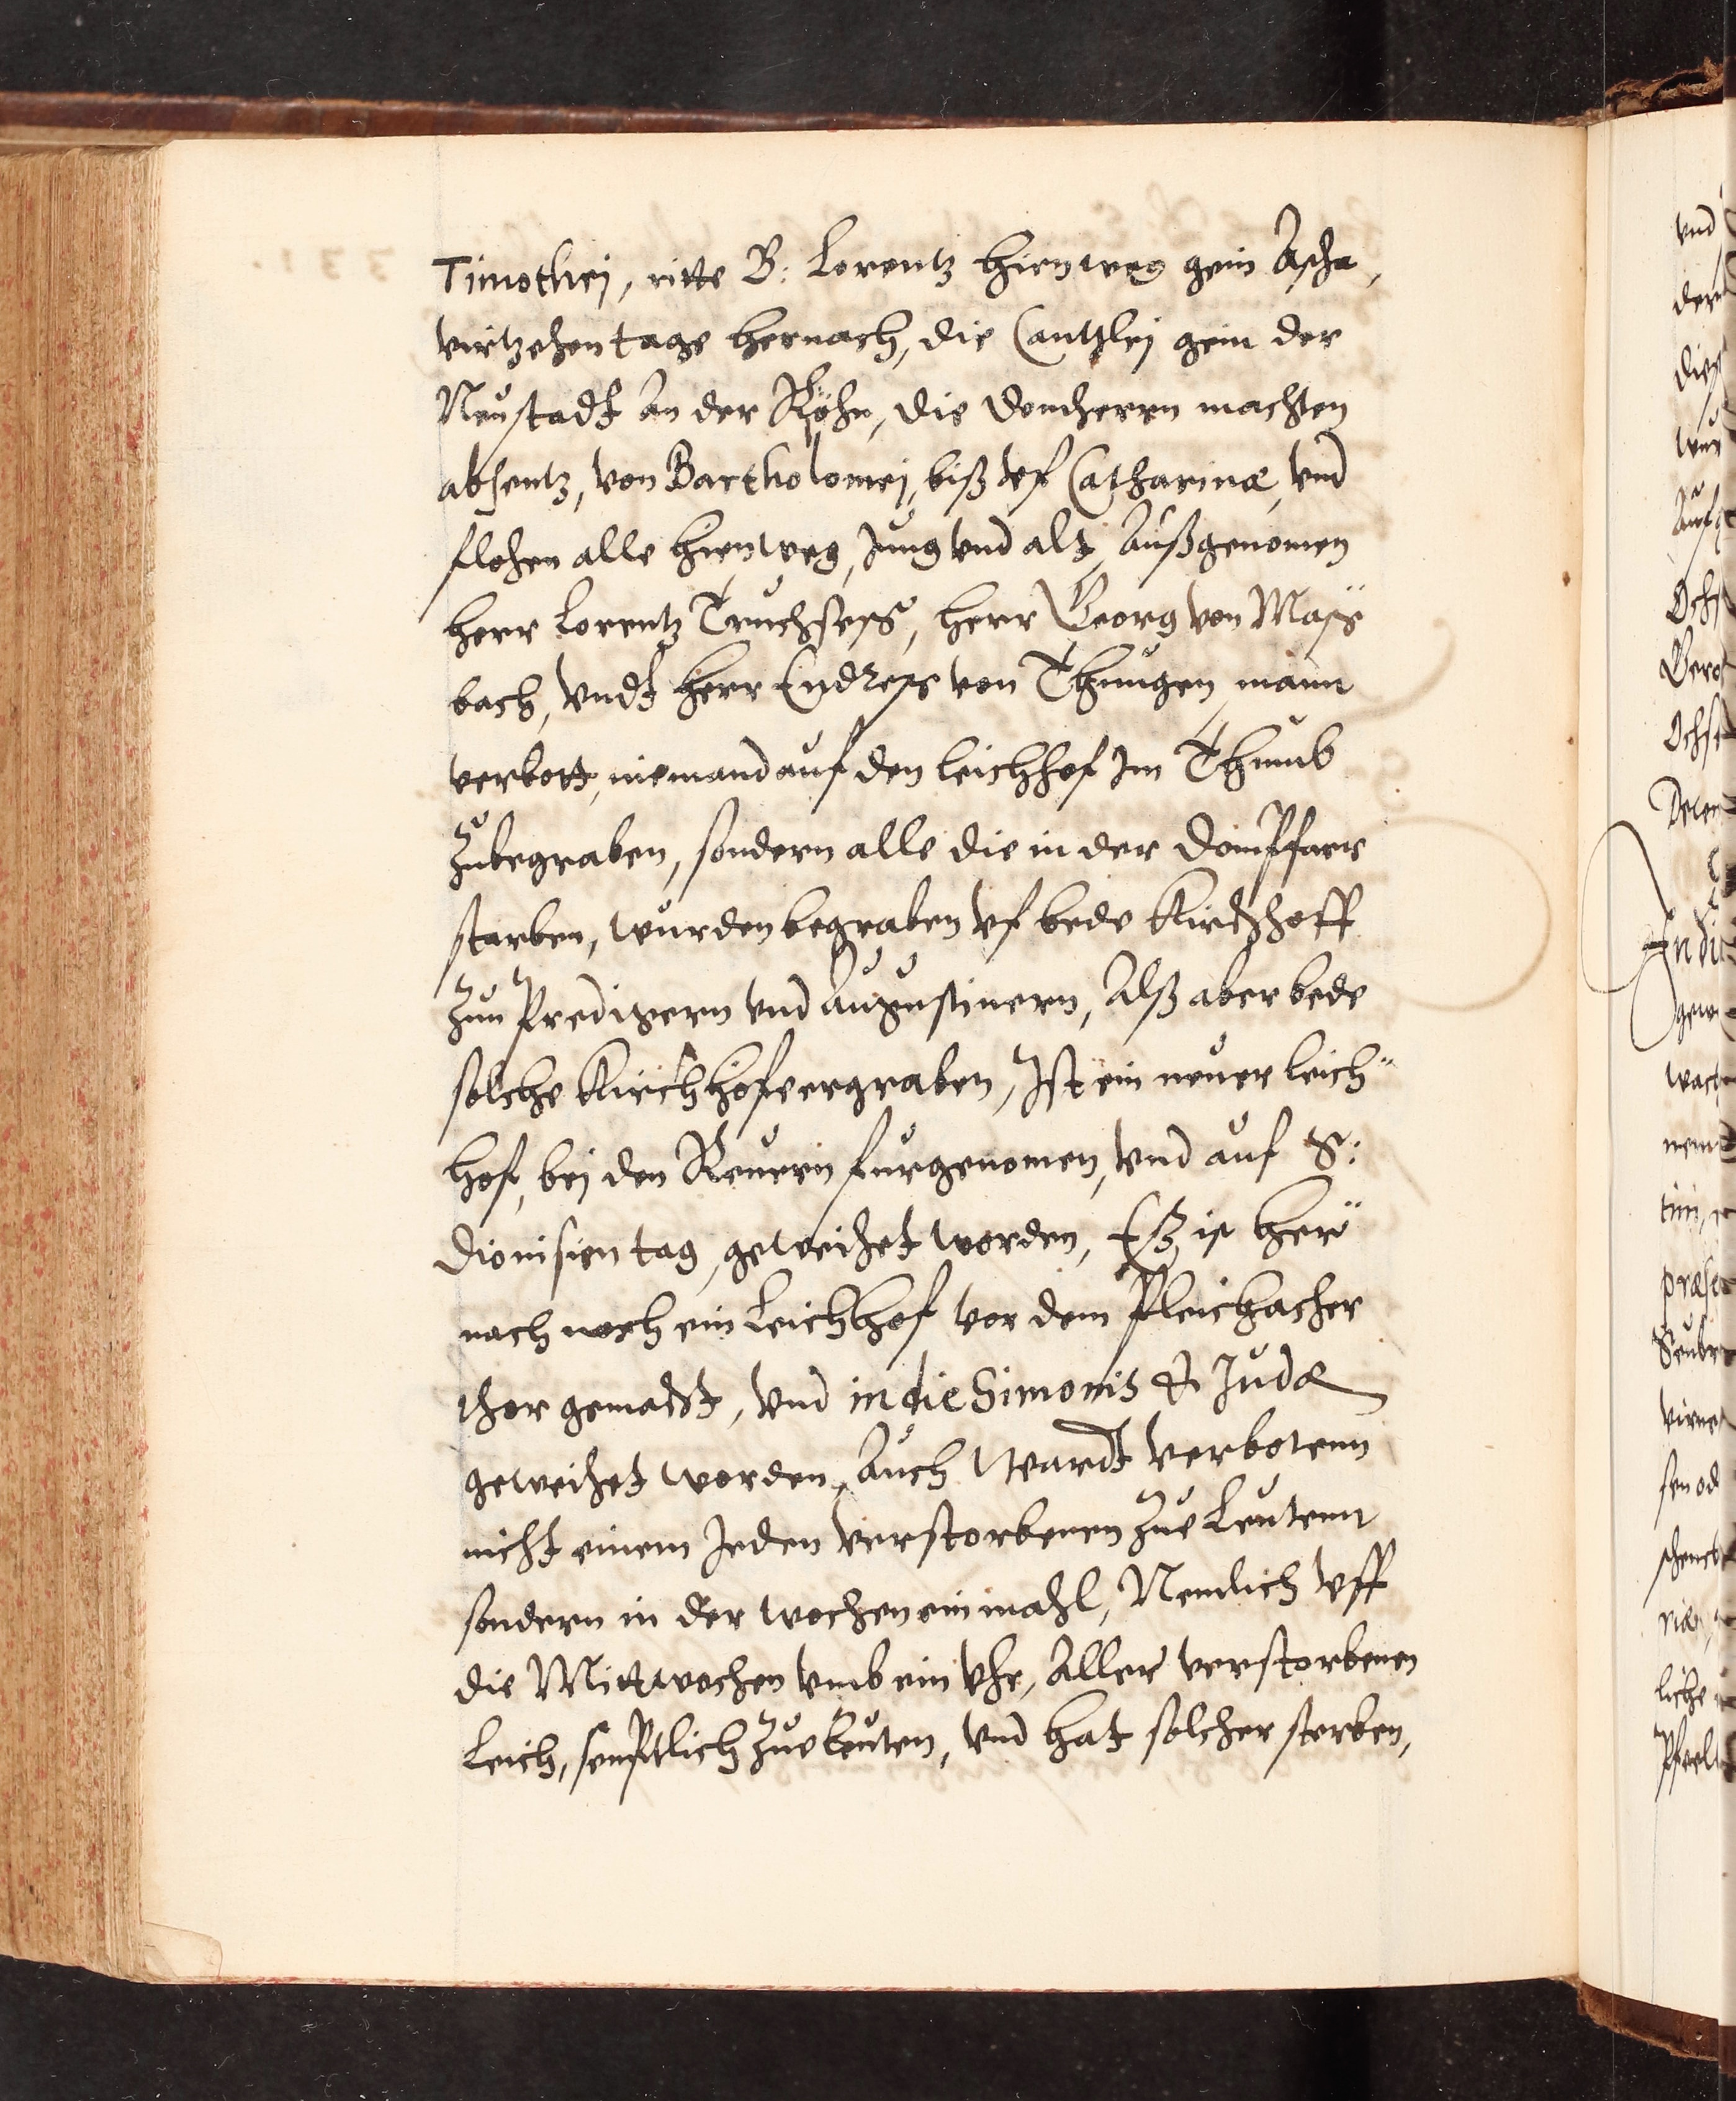 Timothej, ritte B: Lorentz hienweg gein Ascha,
virtzehen tage hernach, die Cantzlej gein der
Neustadt an der Röhn, die domherrn machten
absentz, von Bartholomej, biß vf Catharinæ, vnd
flohen alle hienweg, Jung vnd alt, Außgenomen
herr Lorentz Truchsess, herr Georg von Mass
bach, vndt herr Endress von Thungen, mann
verbott, niemand auf den leichhof Im Thumb
Zubegraben, sondern alle die in der Dompfarr
starben, wurden begraben vf bede Kirchhoff
Zun Predigern vnd Augustinern, Alß aber bede
solche Kirchhöfe ergraben, Ist ein neuer leich-
hof, bej den Reuern furgenomen, vnd auf S:
Dionisien tag, geweihet worden, Eß ist her-
nach noch ein Leichhof vor dem Pleichacher
thor gemacht, vnd in die Simonis & Judæ
geweihet worden, Auch wardt verbotenn
nicht einem Jeden verstorbenen Zue Leutenn
sondern in der wochen ein mahl, Nemlich vff
die Mittwochen vmb ein vhr, Aller verstorbenen
Leich, semptlich Zue leuten, vnd hat solcher sterben,